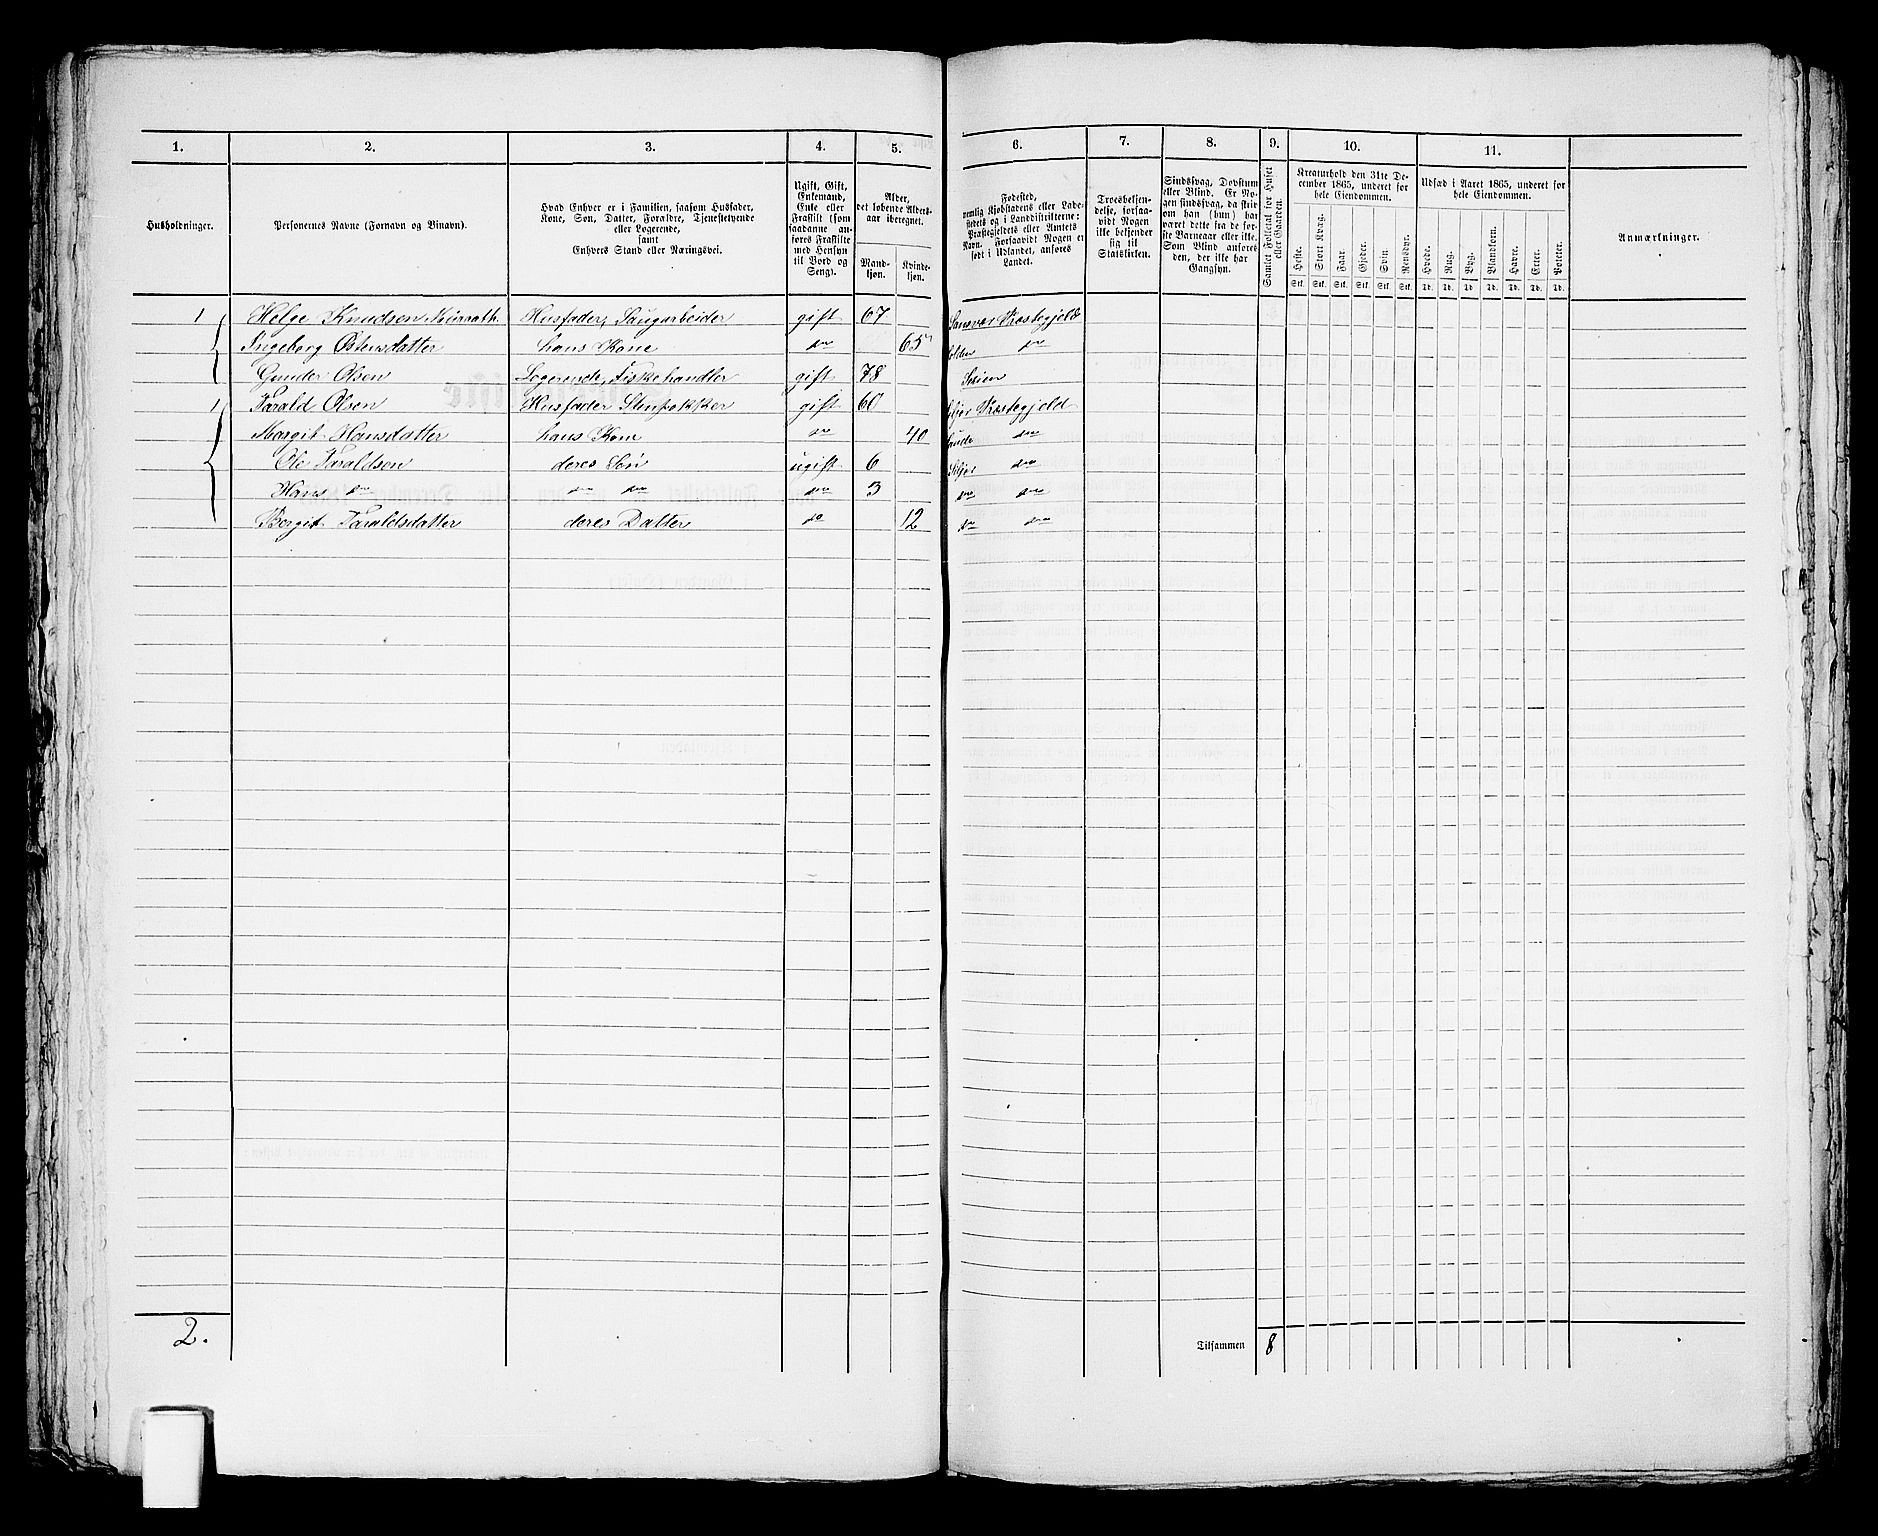 1. 2. 3. 4. 5. 6. 7. 8. 9. 10. 11.
Husholdninger.
Personernes Navne (Fornavn og Binavn).
Hvad Enhver er i Familien, saasom Husfader,
Kone, Søn, Datter, Forældre, Tjenestetyende
eller Logerende,
samt
Enhvers Stand eller Næringsvei.
Ugift, Gift,
Enkemand,
Enke eller
Fraskilt (som
saadanne an-
føres Fraskilte
med Hensyn
til Bord og
Seng).
Alder,
det løbende Alders-
aar iberegnet.
Mand-
kjøn.
Kvinde-
kjøn.
Fødested,
nemlig Kjøbstadens eller Lade-
stedets og i Landdistrikterne:
Præstegjeldets eller Amtets
Navn. Forsaavidt Nogen er
født i Udlandet, anføres
Landet.
Troesbekjen-
delse, forsaa-
vidt Nogen
ikke bekjender
sig til
Statskirken.
Sindssvag, Døvstum
eller Blind. Er No-
gen sindssvag, da skriv
om han (hun) har
været dette fra de før-
ste Barneaar eller ikke.
Som Blind anføres
den, der ikke har
Gangsyn.
Samlet Folketal for Huset
eller Gaarden.
Kreaturhold den 31te De-
cember 1865, underet for
hele Eiendommen.
Heste. Stort Kvæg. Faar. Gjeder. Svin. Rensdyr.
Stk. Stk. Stk. Stk. Stk. Stk.
Udsæd i Aaret 1865, underet for
hele Eiendommen.
Hvede. Rug. Byg. Blandkorn. Havre. Erter. Poteter.
Td. Td. Td. Td. Td. Td. Td.
Anmærkninger.
1 Helge Knudsen Husfader, Saugarbeider gift 67 Sansvær Præstegjeld
Ingeborg Østensdatter hans Kone do 65 Holden do
Gunder Olsen Logerende, Fiskehandler gift 78 Skien
1 Tarald Olsen Husfader Stenpikker gift 60 Siljor Præstegjeld
Margit Hansdatter hans Kone do 40 Saude do
Ole Taraldsen deres Søn ugift 6 Siljor do
Hans do do do do 3 do do
Bergit Taraldsdatter deres Datter do 12 do do
2. Tilsammen 8